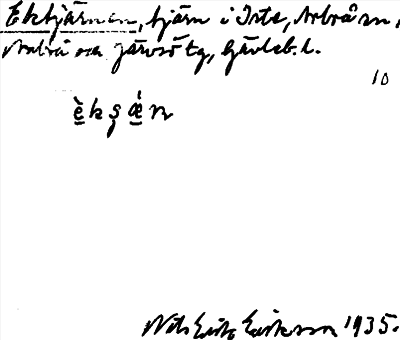 Ektjärnen, tjärn i Iste, Arbrå sn,
Arbrå och Järvsö tg, Gävleb. l.
10
Nils Erik Eriksson 1935.